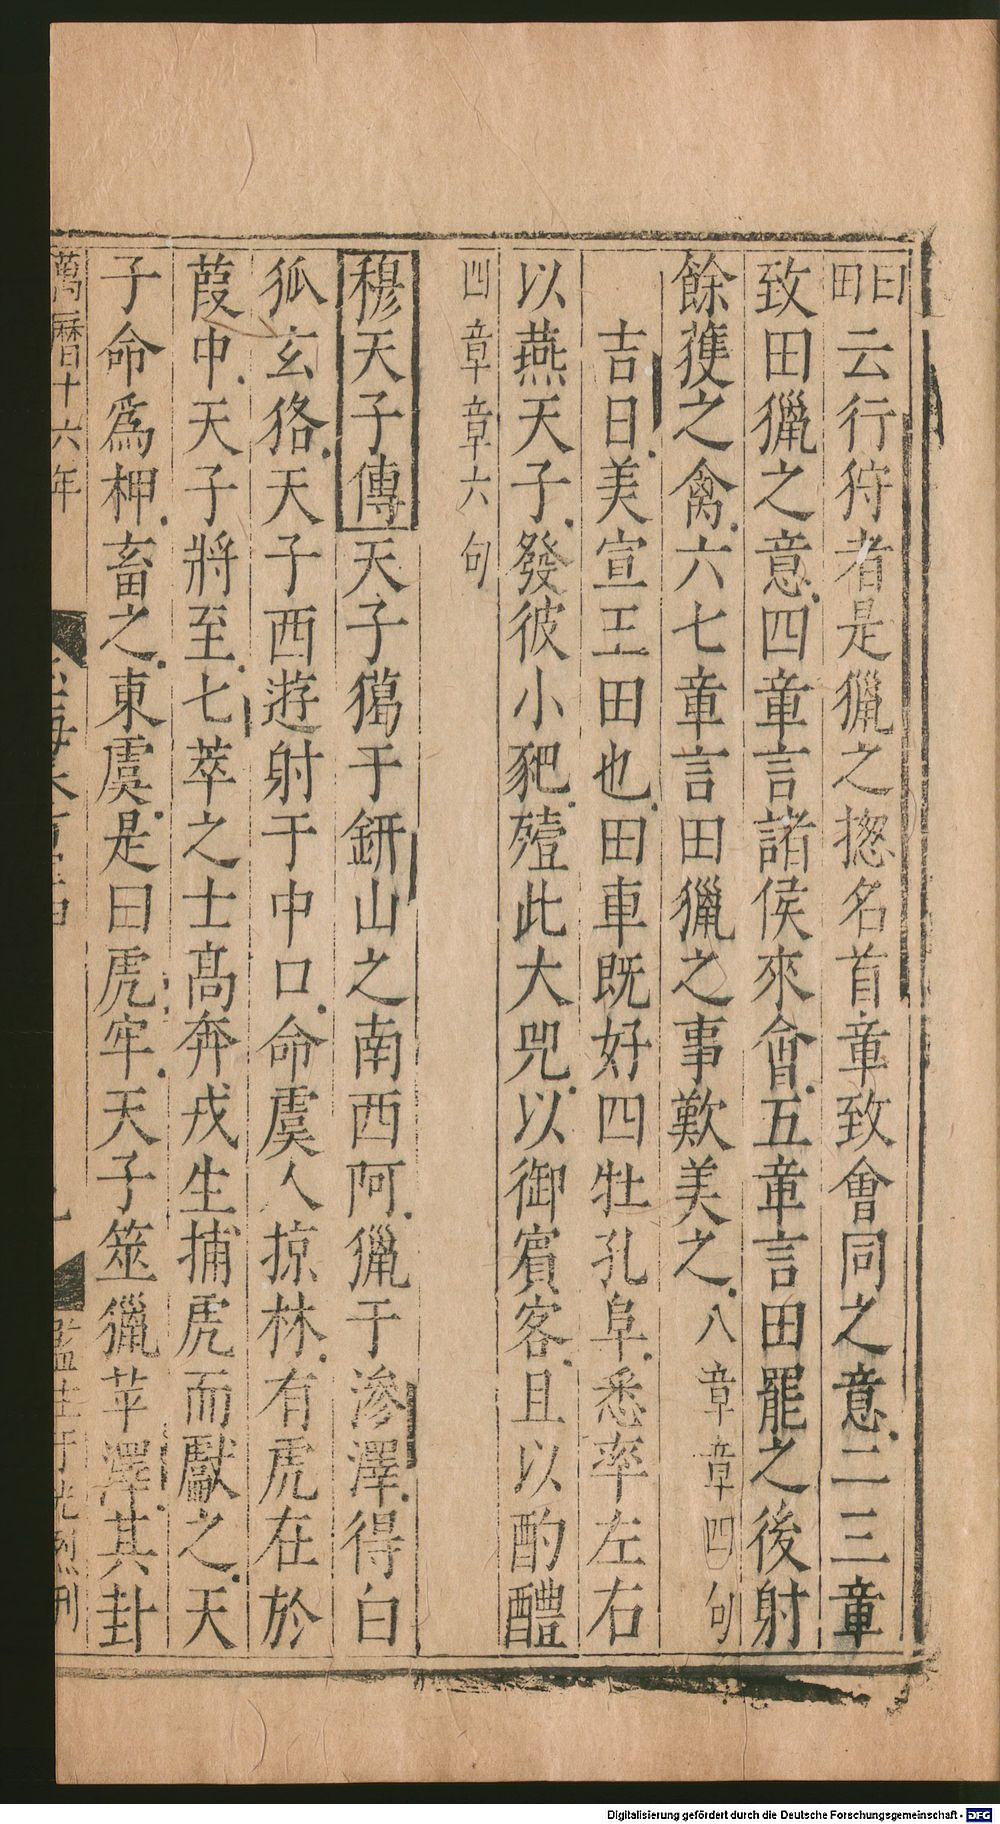 曰田云行狩者是獵之揔名首章致會同之意二三章
致田獵之意四章言諸侯來會五章言田罷之後射
餘獲之禽六七章言田獵之事歎美之八章章四句
吉日美宣王田也田車既好四牡孔阜悉率左右
以燕天子發彼小豝殪此大兕以御賓客且以酌醴
四章章六句
穆天子傳天子獵于鈃山之南西阿獵于滲澤得白
狐玄狢天子西遊射于中口命虞人掠林有虎在於
葭中天子將至七萃之士髙奔戎生捕虎而獻之天
子命爲柙畜之東虞是曰虎牢天子筮獵苹澤其卦
萬曆十六年
監生于光烈刊
Digitalisierung gefördert durch die Deutsche Forschungsgemeinschaft - DFG